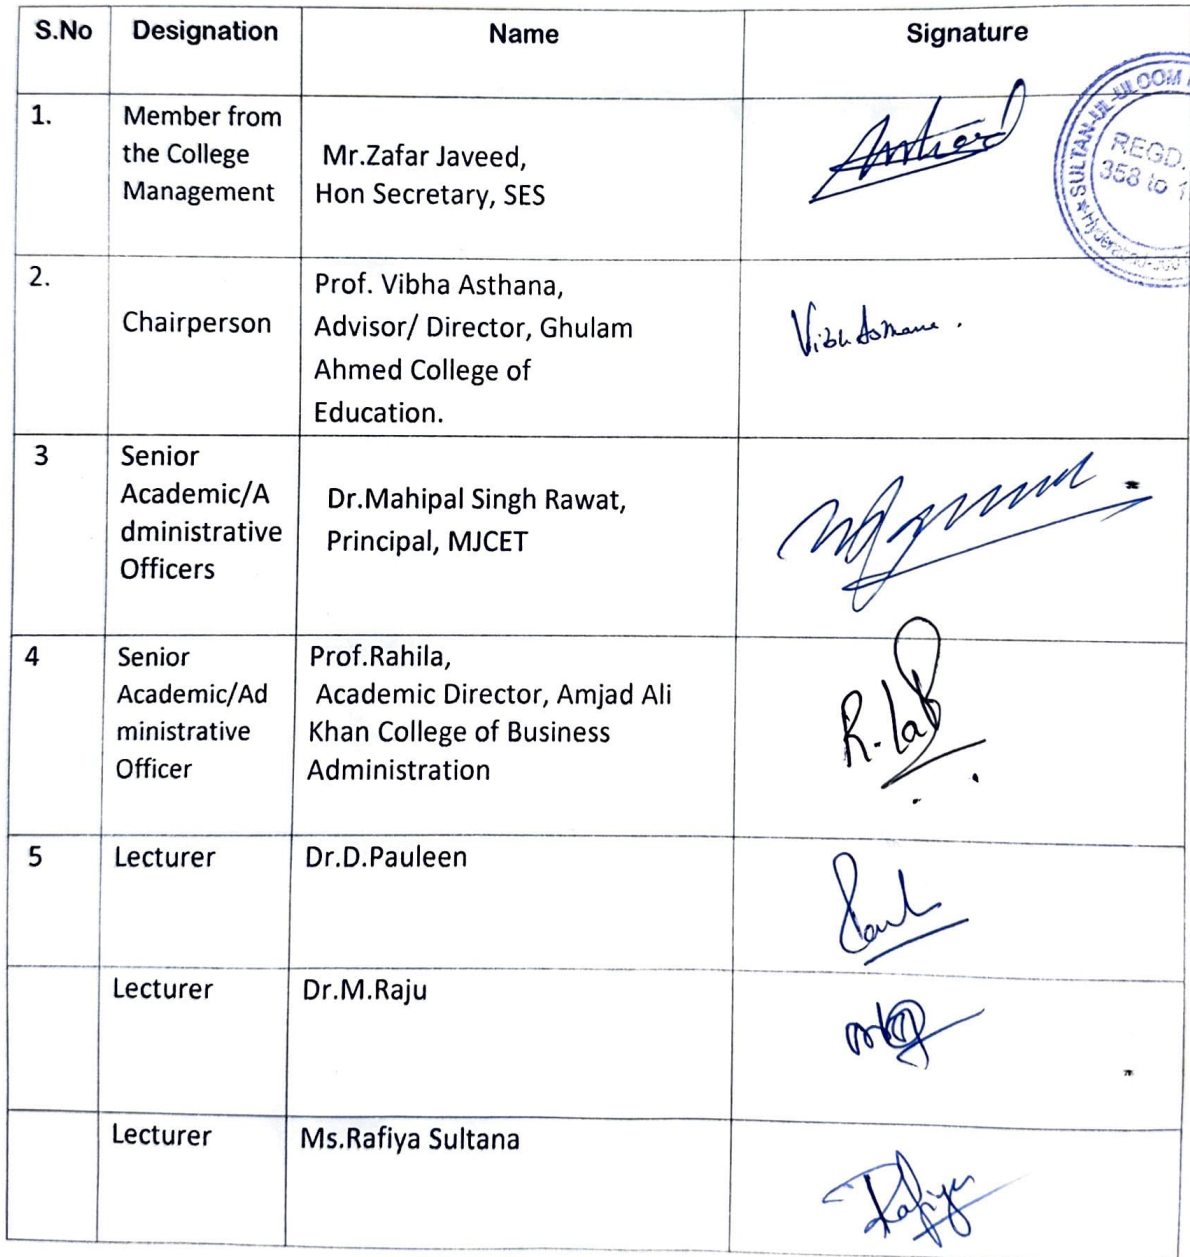 S.No Designation Name Signature
1. Member from
the College
Management
Mr.Zafar Javeed,
Hon Secretary, SES
SULTAN-UL-ULOOM
REGD.
358 to
Hyderabad-500
2. Chairperson
Prof. Vibha Asthana,
Advisor/ Director, Ghulam
Ahmed College of
Education.
3 Senior
Academic/A
dministrative
Officers
Dr.Mahipal Singh Rawat,
Principal, MJCET
4 Senior
Academic/Ad
ministrative
Officer
Prof.Rahila,
Academic Director, Amjad Ali
Khan College of Business
Administration
5 Lecturer Dr.D.Pauleen
Lecturer Dr.M.Raju
Lecturer Ms.Rafiya Sultana
Rafiya